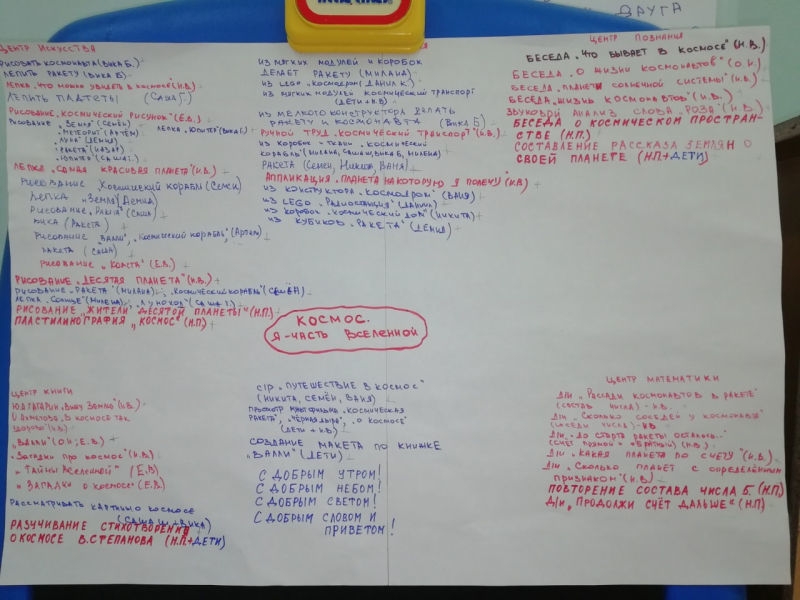 ДРУГА
ЦЕНТР ИСКУССТВА
РИСОВАТЬ КОСМОНАВТА (ВИКА Б.)
ЛЕПИТЬ РАКЕТУ (ВИКА Б)
ЛЕПКА „ЧТО МОЖНО УВИДЕТЬ В КОСМОСЕ" (И.В.)
ЛЕПИТЬ ПЛАНЕТЫ (САША Г.)
РИСОВАНИЕ „КОСМИЧЕСКИЙ РИСУНОК" (Е.В.)
РИСОВАНИЕ „ЗЕМЛЯ" (СЕМЁН)
„МЕТЕОРИТ" (АРТЁМ) ЛЕПКА „ЮПИТЕР" (ВИКА Б.)
„ЛУНА" (ДЕМИД)
„РАКЕТА" (НАЗАР)
„ЮПИТЕР" (САША Г.)
ЛЕПКА „САМАЯ КРАСИВАЯ ПЛАНЕТА" (И.В.)
РИСОВАНИЕ КОСМИЧЕСКИЙ КОРАБЛЬ (СЕМЁН)
ЛЕПКА „ЗЕМЛЯ" (ДЕМИД)
РИСОВАНИЕ „РАКЕТА" (САША
ВИКА (РАКЕТА)
РИСОВАНИЕ „ВАЛЛИ", „КОСМИЧЕСКИЙ КОРАБЛЬ" (АРТЁМ)
РАКЕТА (САША)
РИСОВАНИЕ „КОМЕТА" (Е.В.)
РИСОВАНИЕ „ДЕСЯТАЯ ПЛАНЕТА" (И.В.)
РИСОВАНИЕ „РАКЕТА" (МИЛАНА), „КОСМИЧЕСКИЙ КОРАБЛЬ" (СЕМЁН)
ЛЕПКА „СОЛНЦЕ" (МИЛЕНА), „ЛУНОХОД" (САША Г.)
РИСОВАНИЕ „ЖИТЕЛИ ДЕСЯТОЙ ПЛАНЕТЫ" (Н.П.)
ПЛАСТИЛИНОГРАФИЯ „КОСМОС" (Н.П)
ИЗ МЯГКИХ МОДУЛЕЙ И КОРОБОК
ДЕЛАЕТ РАКЕТУ (МИЛАНА)
ИЗ LEGO „КОСМОДРОМ" (ДАНИЛ К.)
ИЗ МЯГКИХ МОДУЛЕЙ КОСМИЧЕСКИЙ ТРАНСПОРТ
(ДЕТИ + И.В)
ИЗ МЕЛКОГО КОНСТРУКТОРА ДЕЛАТЬ
РАКЕТУ КОСМОНАВТА (ВИКА Б)
РУЧНОЙ ТРУД „КОСМИЧЕСКИЙ ТРАНСПОРТ" (И.В.)
ИЗ КОРОБОК И ТКАНИ „КОСМИЧЕСКИЙ
КОРАБЛЬ" (МИЛАНА, САША, ВИКА Б, МИЛЕНА)
РАКЕТА (СЕМЁН, НИКИТА, ВАНЯ)
АППЛИКАЦИЯ „ПЛАНЕТА НА КОТОРУЮ Я ПОЛЕЧУ" (И.В)
ИЗ КОНСТРУКТОРА „КОСМОДРОМ" (ВАНЯ)
ИЗ LEGO „РАДИОСТАНЦИЯ" (ДАНИИЛ)
ИЗ КОРОБОК „КОСМИЧЕСКИЙ ДОМ" (НИКИТА)
ИЗ КУБИКОВ „РАКЕТА" (ДЕМИД)
ЦЕНТР ПОЗНАНИЯ
БЕСЕДА „ЧТО БЫВАЕТ В КОСМОСЕ" (И.В.)
БЕСЕДА „О ЖИЗНИ КОСМОНАВТОВ" (О.И.)
БЕСЕДА „ПЛАНЕТЫ СОЛНЕЧНОЙ СИСТЕМЫ" (И.В.)
БЕСЕДА „ЖИЗНЬ КОСМОНАВТОВ" (И.В)
ЗВУКОВОЙ АНАЛИЗ СЛОВА „РОЗА" (И.В)
БЕСЕДА О КОСМИЧЕСКОМ ПРОСТРАН-
СТВЕ (Н.П.)
СОСТАВЛЕНИЕ РАССКАЗА ЗЕМЛЯН О
СВОЕЙ ПЛАНЕТЕ (Н.П+ДЕТИ)
КОСМОС.
Я-ЧАСТЬ ВСЕЛЕННОЙ
ЦЕНТР КНИГИ
Ю.А ГАГАРИН „ВИЖУ ЗЕМЛЮ" (И.В.)
О. АХМЕТОВА „В КОСМОСЕ ТАК
ЗДОРОВО" (И.В)
„ВАЛЛИ" (О.И, Е.В.)
„ЗАГАДКИ ПРО КОСМОС" (И.В.)
„ТАЙНЫ ВСЕЛЕННОЙ" (Е.В)
„ЗАГАДКИ О КОСМОСЕ" (Е.В.)
РАССМАТРИВАТЬ КАРТИНКИ О КОСМОСЕ
РАЗУЧИВАНИЕ СТИХОТВОРЕНИЯ
О КОСМОСЕ В.СТЕПАНОВА (Н.П+ДЕТИ)
С/Р „ПУТЕШЕСТВИЕ В КОСМОС"
(НИКИТА, СЕМЁН, ВАНЯ)
ПРОСМОТР МУЛЬТФИЛЬМА „КОСМИЧЕСКАЯ
РАКЕТА", „ЧЁРНАЯ ДЫРА", „О КОСМОСЕ"
(ДЕТИ + И.В)
СОЗДАНИЕ МАКЕТА ПО КНИЖКЕ
„ВАЛЛИ" (ДЕТИ)
С ДОБРЫМ УТРОМ!
С ДОБРЫМ НЕБОМ!
С ДОБРЫМ СВЕТОМ!
С ДОБРЫМ СЛОВОМ И
ПРИВЕТОМ!
ЦЕНТР МАТЕМАТИКИ
Д/и „РАССАДИ КОСМОНАВТОВ В РАКЕТЕ"
(СОСТАВ ЧИСЛА) - И.В.
Д/и „СКОЛЬКО СОСЕДЕЙ У КОСМОНАВТА"
(СОСЕДИ ЧИСЛА) - И.В
Д/и „ДО СТАРТА РАКЕТЫ ОСТАЛОСЬ..."
(СЧЁТ ПРЯМОЙ И ОБРАТНЫЙ) (И.В.)
Д/и „КАКАЯ ПЛАНЕТА ПО СЧЁТУ" (И.В.)
Д/и „СКОЛЬКО ПЛАНЕТ С ОПРЕДЕЛЁННЫМ
ПРИЗНАКОМ" (И.В)
ПОВТОРЕНИЕ СОСТАВА ЧИСЛА 5. (Н.П)
Д/И „ПРОДОЛЖИ СЧЁТ ДАЛЬШЕ" (Н.П)